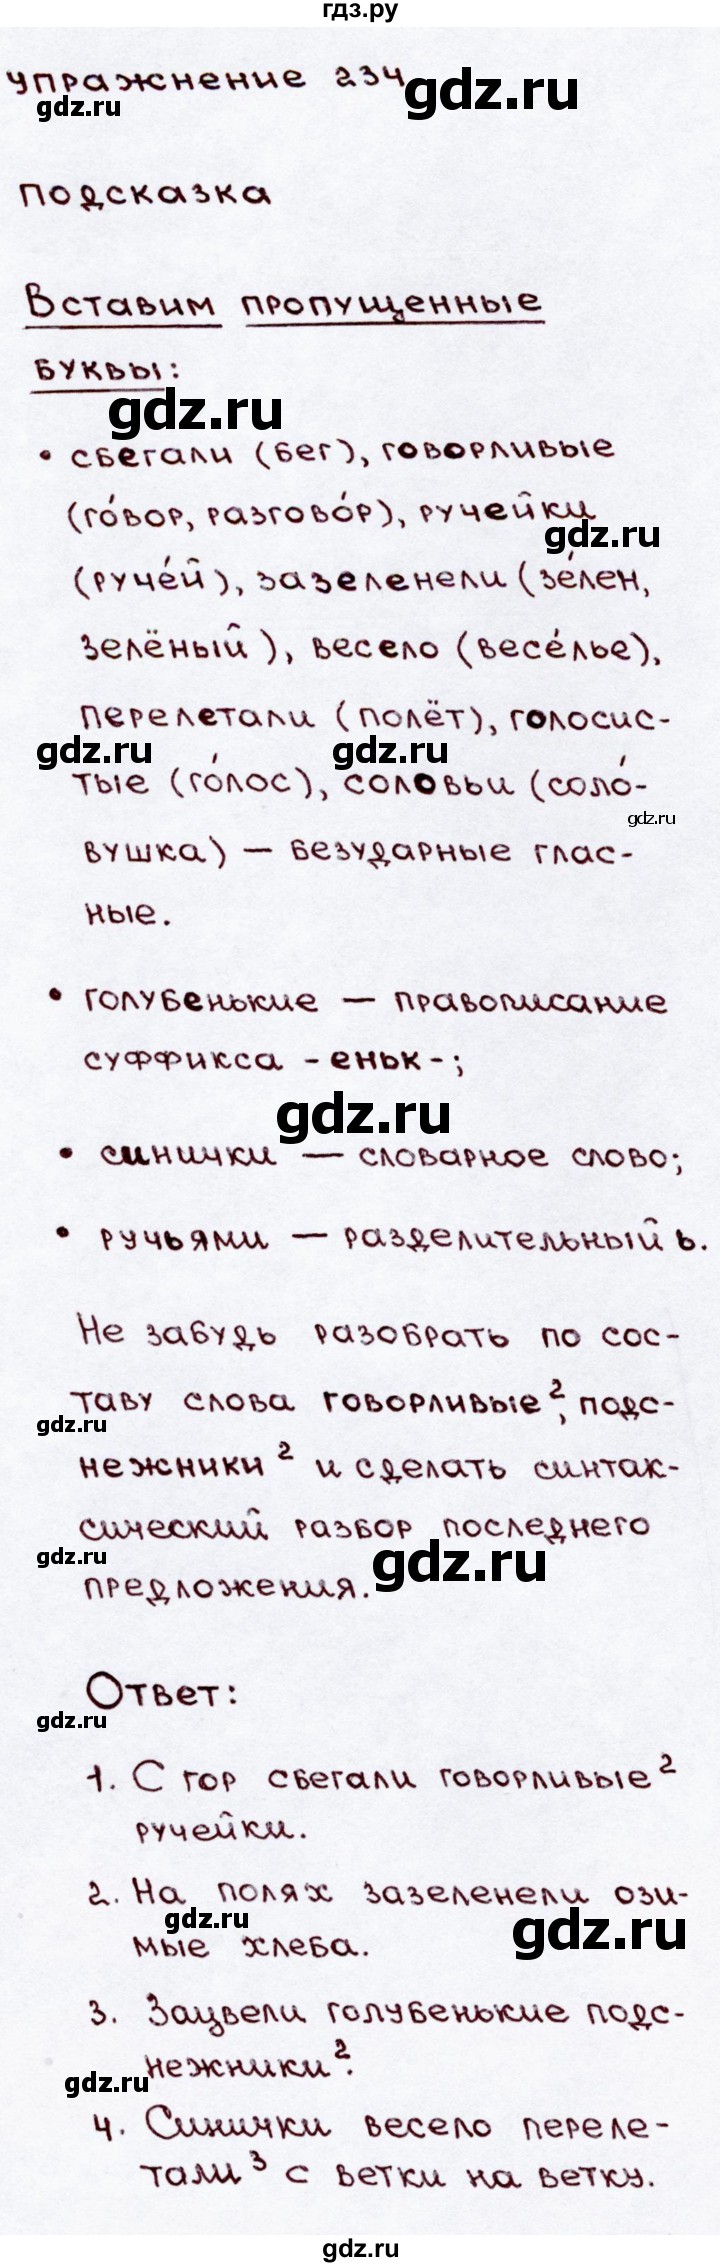 гдз.ру
упражнение 234
gdz.ru
gdz.ru
подсказка
Вставим пропущенные
буквы:
gdz.ru
• сбегали (бег), говорливые
(го́вор, разгово́р), ручейки
gdz.ru
(руче́й), зазеленели (зе́лен,
зелёный), весело (весе́лье),
перелетали (полёт), голосис-
gdz.ru
gdz.ru
тые (го́лос), соловьи (соло́-
gdz.ru
вушка) — безударные глас-
ные.
• голубенькие — правописание
суффикса -еньк-;
gdz.ru
• синички — словарное слово;
• ручьями — разделительный ь.
Не забудь разобрать по сос-
таву слова говорливые², подс-
gdz.ru
нежники² и сделать синтак-
сический разбор последнего
gdz.ru
gdz.ru
предложения.
Ответ:
gdz.ru
1. С гор сбегали говорливые²
ручейки.
2. На полях зазеленели ози-
gdz.ru
gdz.ru
мые хлеба.
3. Зацвели голубенькие подс-
нежники².
gdz.ru
4. Синички весело переле-
тали³ с ветки на ветку.
gdz.ru